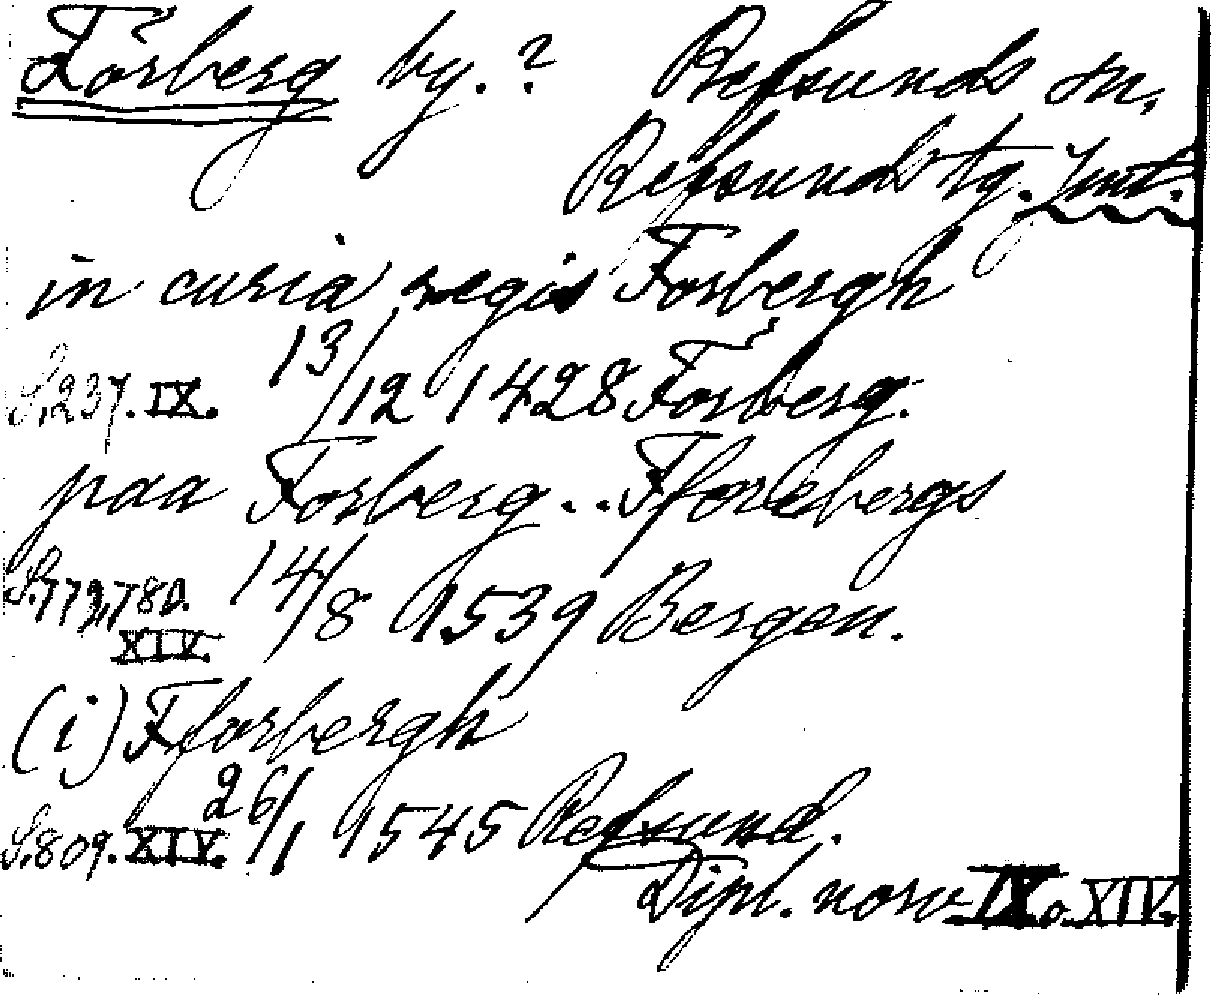 Förberg by.? Refsunds sn,
Refsunds tg. Jmt.
in curia regis Forbergh
S. 237. IX. 13/12 1428 Förberg.
paa Forberg... Fforebergs
S. 779, 780. XIV. 14/8 1539 Bergen.
(i) Fforbergh
S. 809. XIV. 26/1 1545 Refsund.
Dipl. norv. IX. o. XIV.